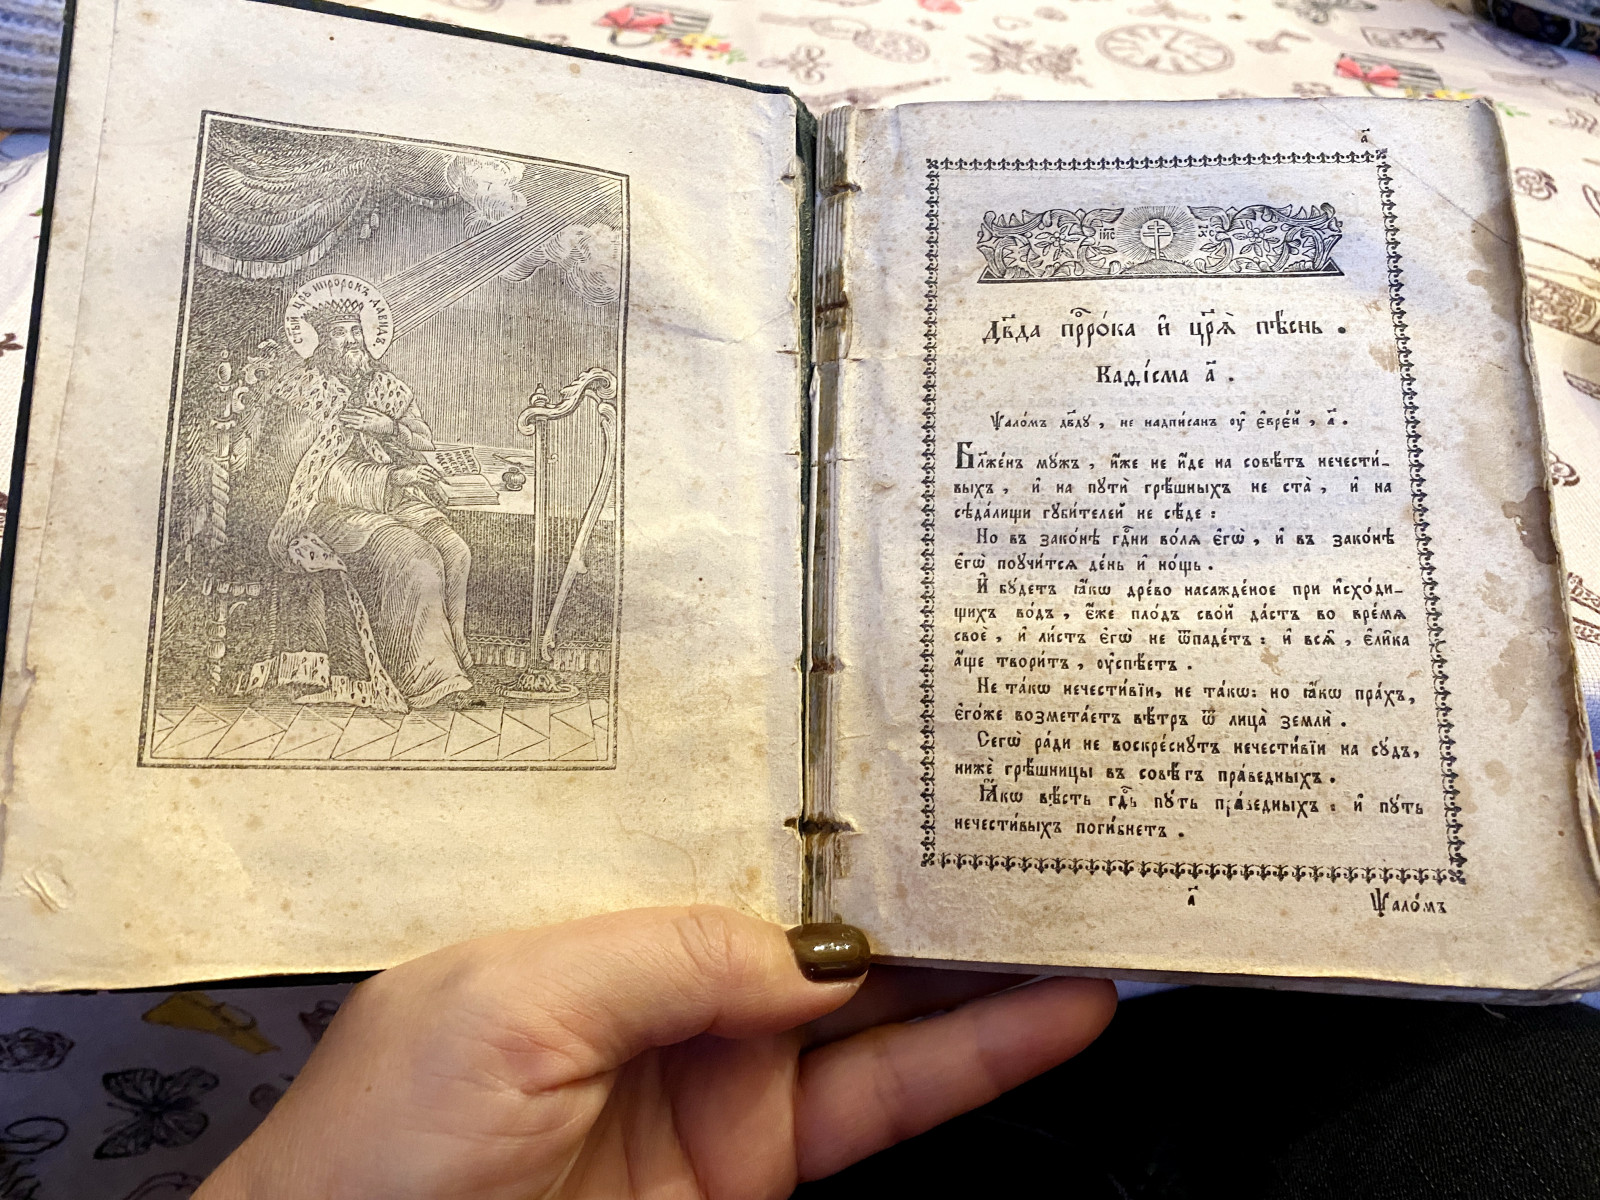 СТЫЙ ЦРЬ ИПРОРОКЪ ДАВИДЪ.
а҃
І҆И҃С Х҃С
Дв҃да прⷪ҇ро́ка и҆ цр҃ѧ̀ пѣ́снь .
Каѳі́сма а҃ .
Ѱало́мъ дв҃ду , не надпи́санъ ᲂу҆ є҆вре́й , а҃ .
Бл҃же́нъ мꙋ́жъ , и҆́же не и҆́де на совѣ́тъ нечести́-
выхъ , и҆ на пꙋтѝ грѣ́шныхъ не ста̀ , и҆ на
сѣда́лищи гꙋби́телей не сѣ́де :
Но въ зако́нѣ гдⷭ҇ни во́лѧ є҆гѡ̀ , и҆ въ зако́нѣ
є҆гѡ̀ поꙋчи́тсѧ де́нь и҆ но́щь .
И҆ бꙋ́детъ ꙗ҆́кѡ дре́во насажде́ное при и҆схо́ди-
щихъ во́дъ , є҆́же пло́дъ сво́й да́стъ во вре́мѧ
своѐ , и҆ ли́стъ є҆гѡ̀ не ѿпаде́тъ : и҆ всѧ̑ , є҆ли̑ка
а҆́ще твори́тъ , ᲂу҆спѣ́етъ .
Не та́кѡ нечести́вїи, не та́кѡ: но ꙗ҆́кѡ пра́хъ,
є҆го́же возмета́етъ вѣ́тръ ѿ лица̀ землѝ .
Сегѡ̀ ра́ди не воскре́снꙋтъ нечести́вїи на сꙋ́дъ,
нижѐ грѣ́шницы въ совѣ́тъ пра́ведныхъ .
Ꙗ҆́кѡ вѣ́сть гдⷭ҇ь пꙋ́ть пра́ведныхъ : и҆ пꙋ́ть
нечести́выхъ поги́бнетъ .
а҃ Ѱало́мъ